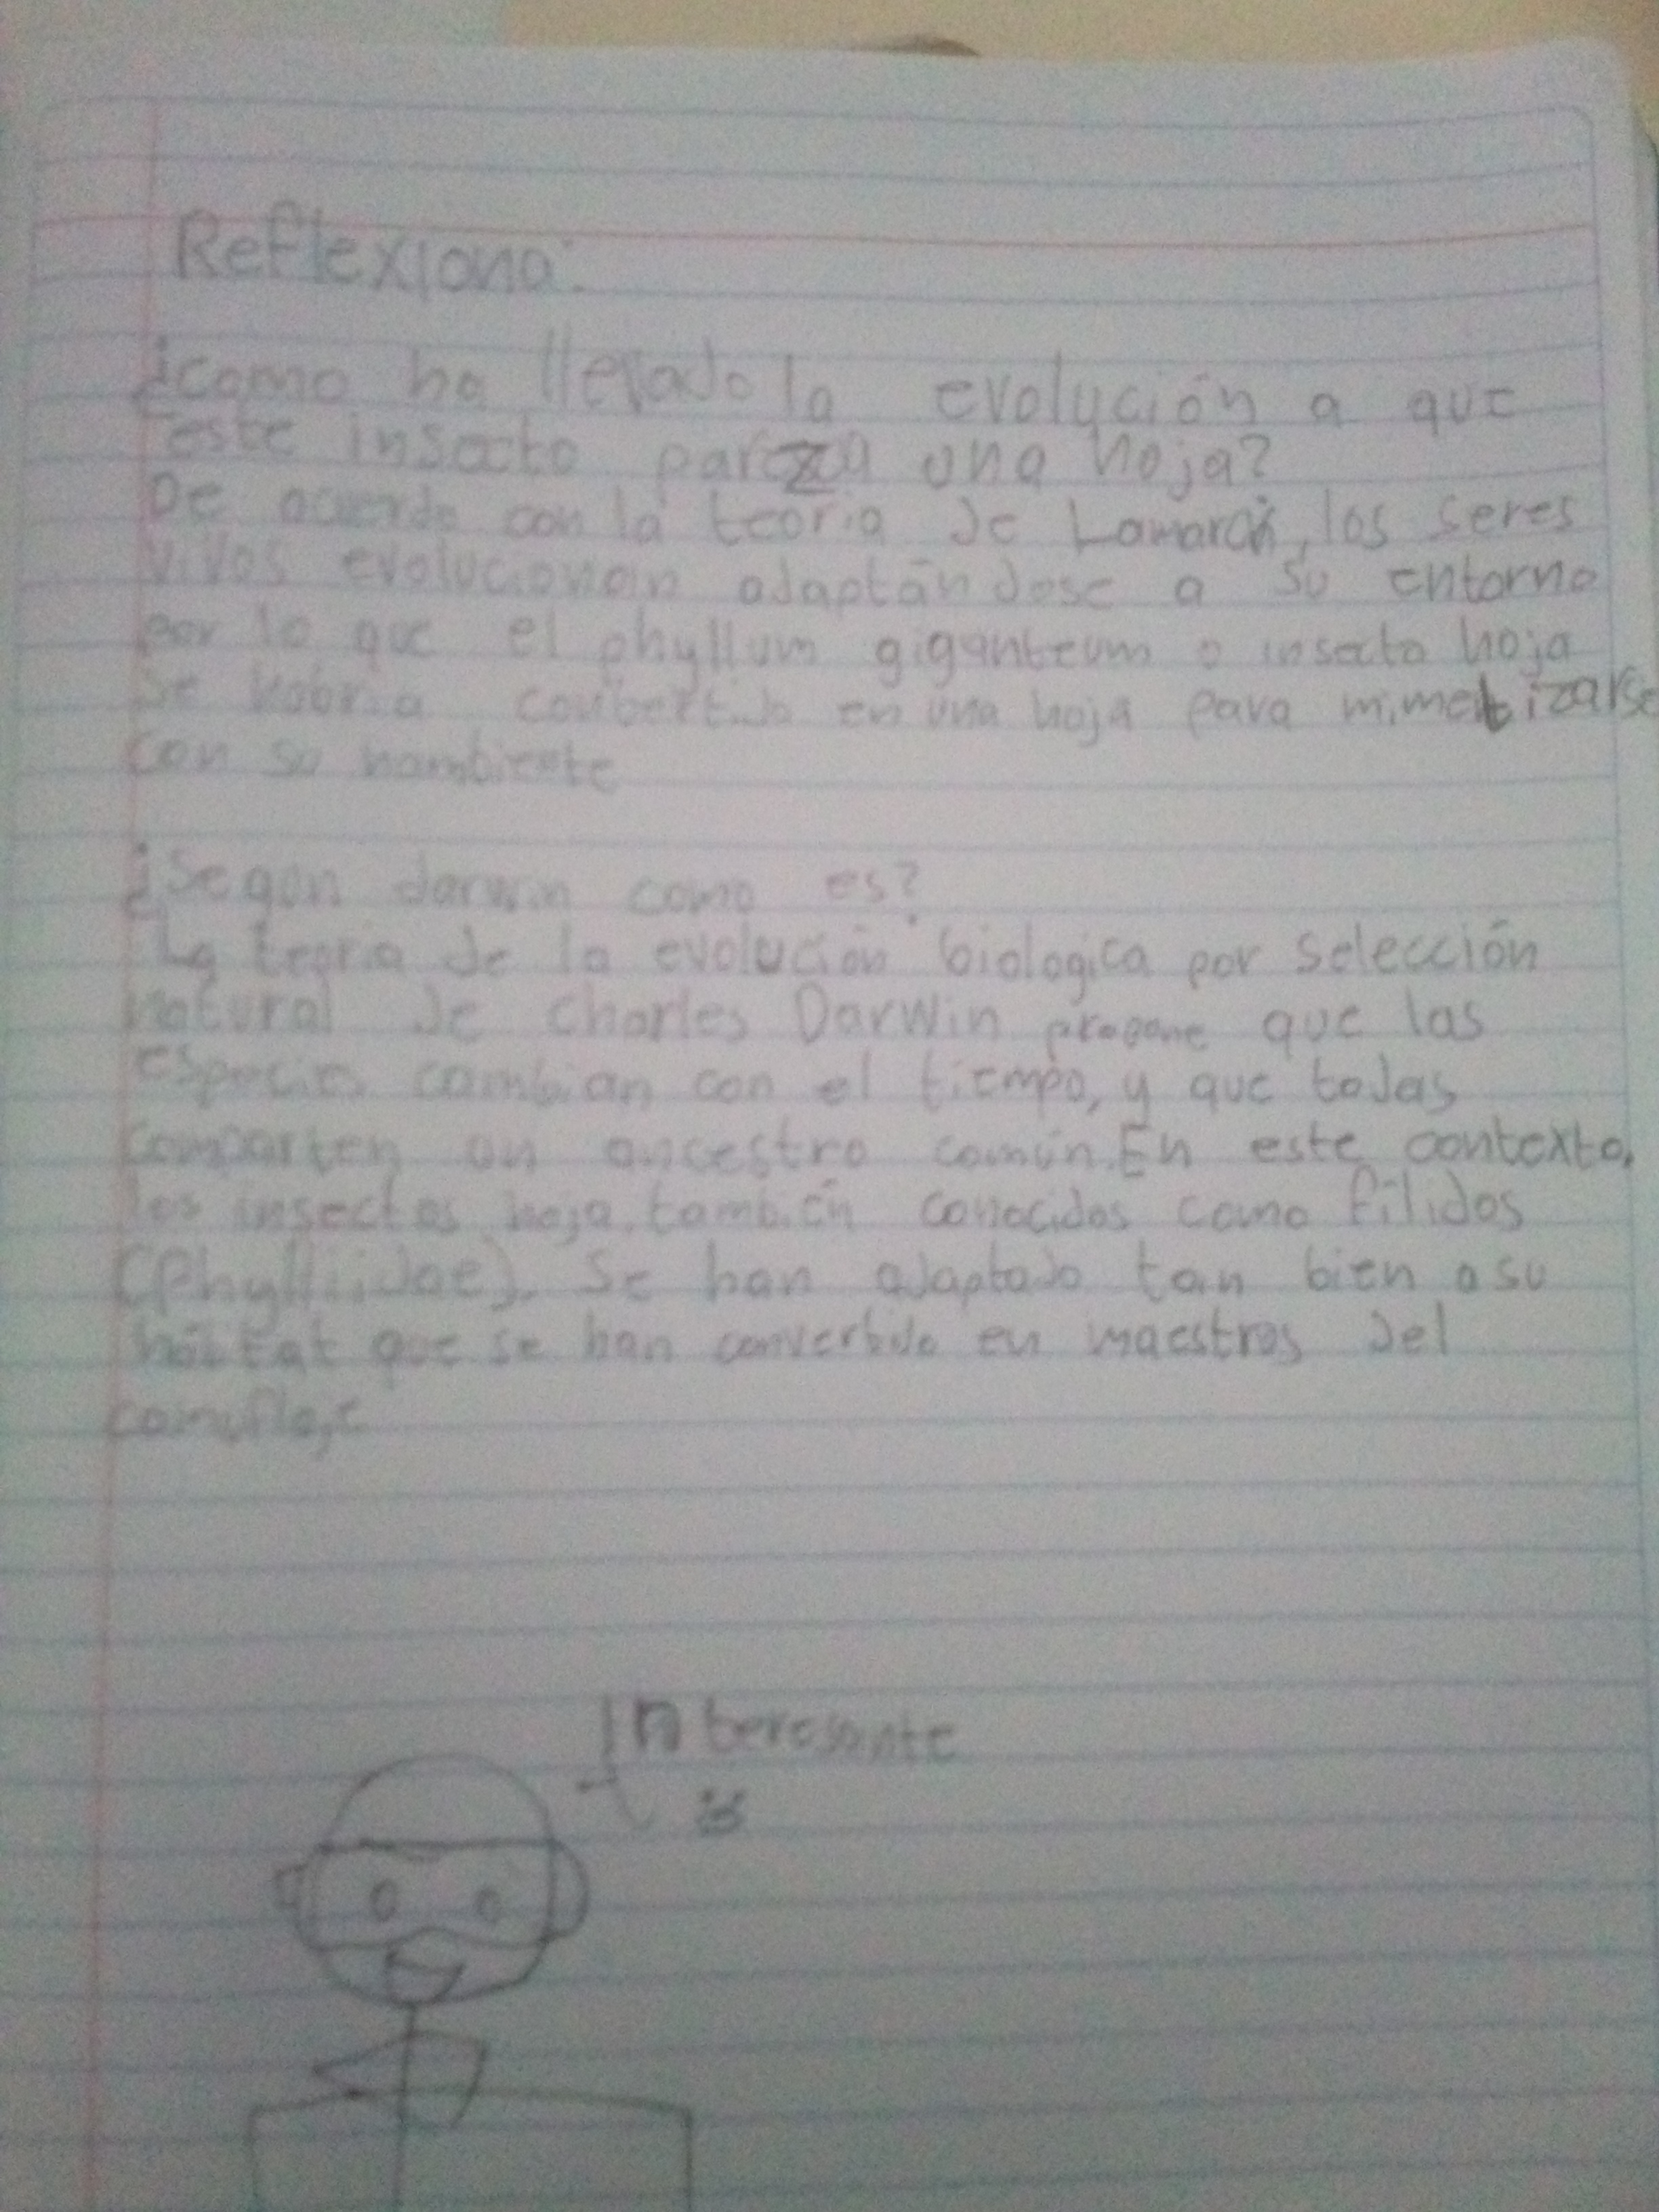 Reflexiona:
¿como ha llevado la evolución a que
este insecto parezca una hoja?
De acuerdo con la teoria de Lamarck, los seres
vivos evolucionan adaptándose a su entorno
por lo que el phyllum giganteum o insecto hoja
se habria coubertido en una hoja para mimetizarse
con su hambiente
¿Segun darwin como es?
La teoria de la evolución biologica por selección
natural de Charles Darwin propone que las
especies cambian con el tiempo, y que todas
comparten un ancestro común. En este contexto,
los insectos hoja, también conocidos como filidos
(Phylliidae), se han adaptado tan bien a su
hábitat que se han convertido en maestros del
camuflaje
Interesante